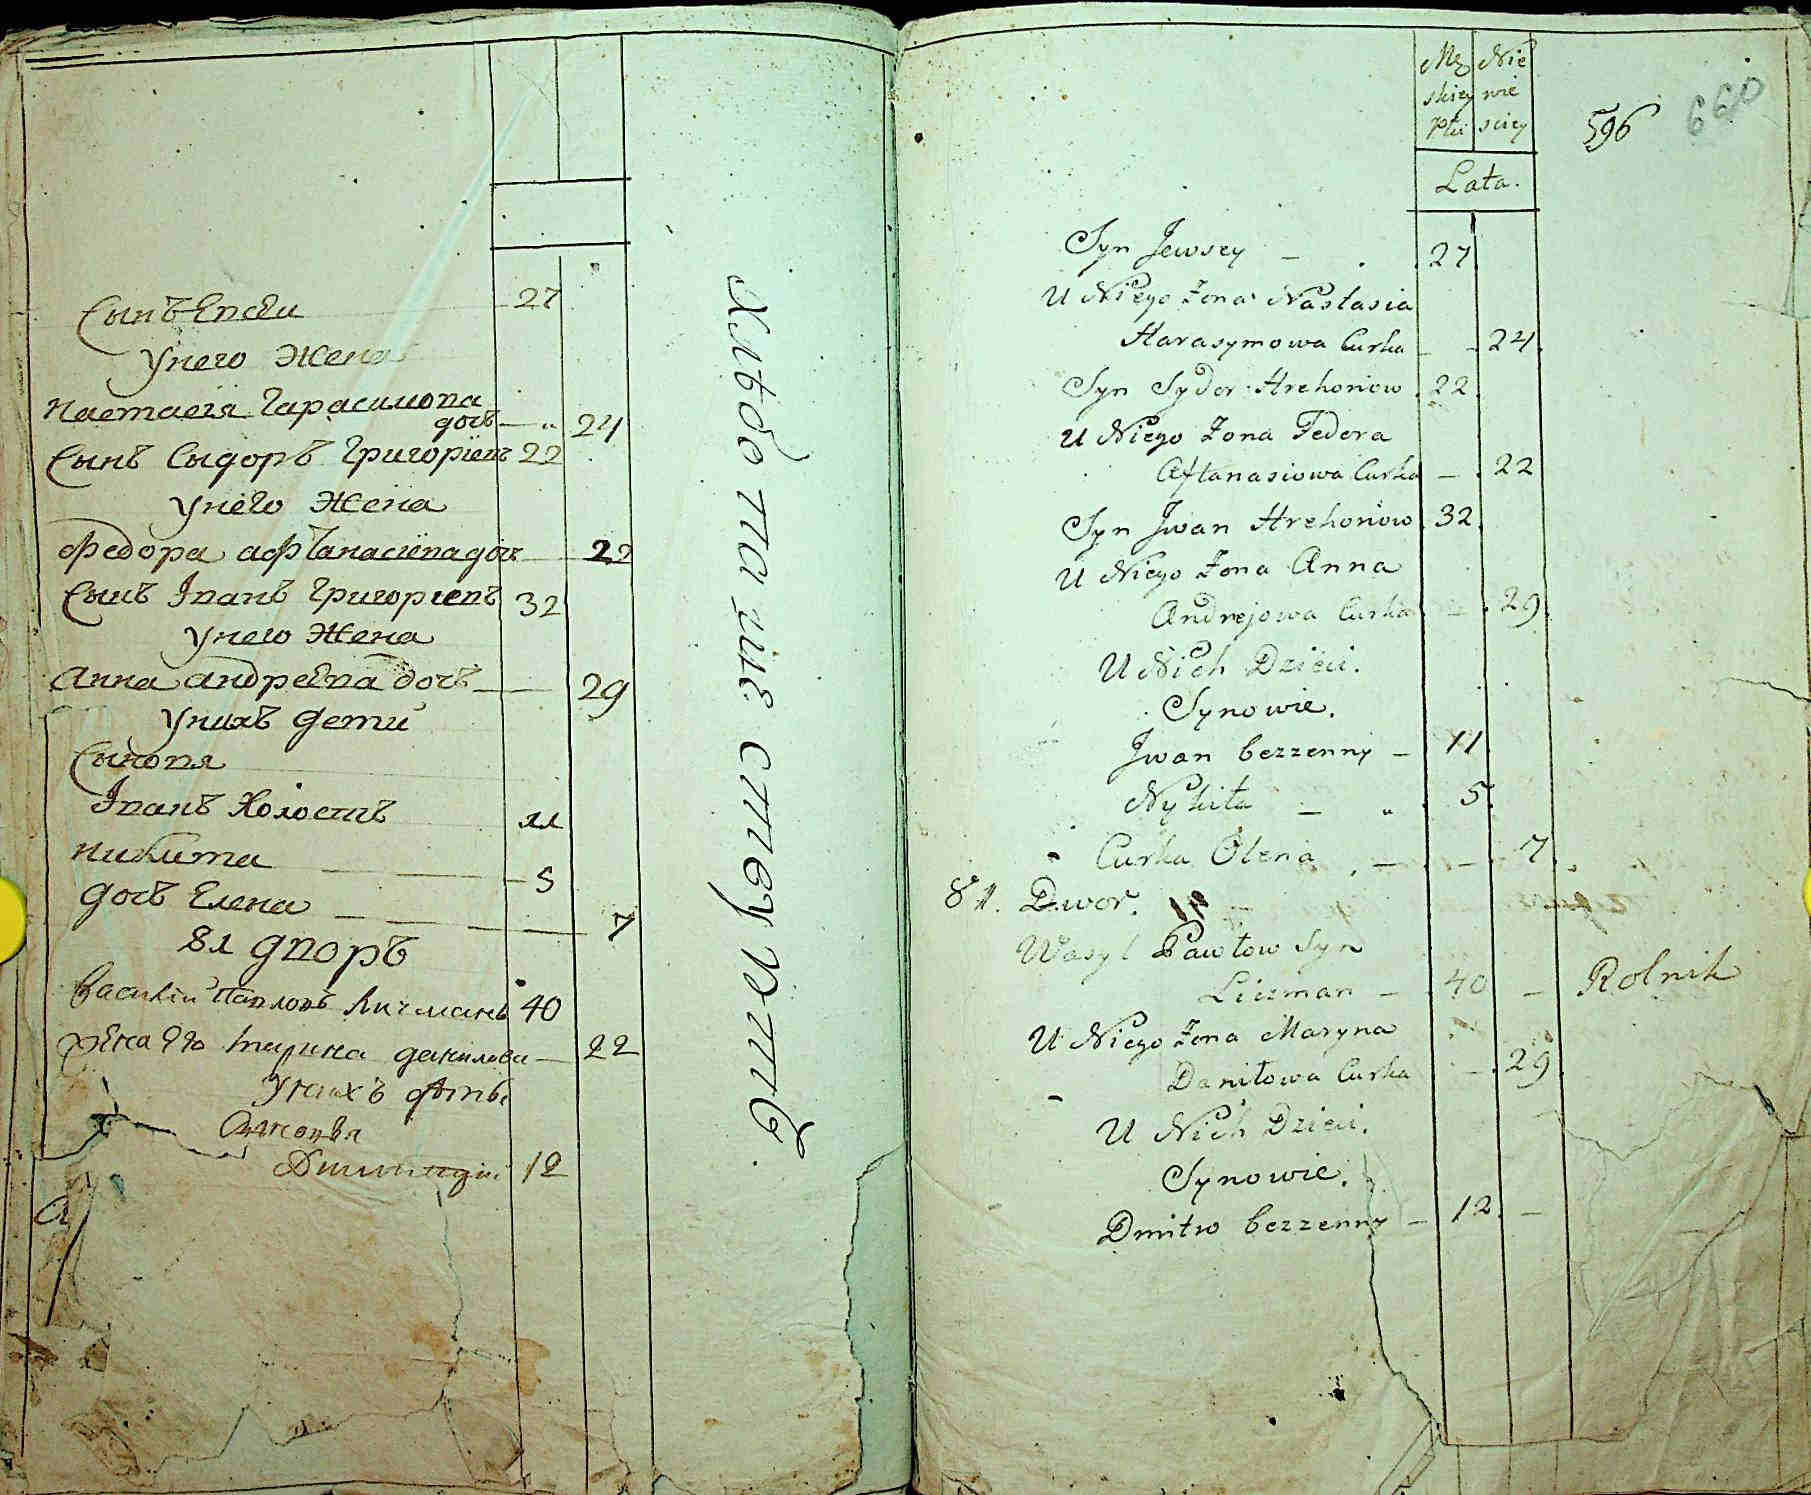 Сынъ Евсеи 27
Унего Жена
Настасія Гарасимова
дочъ — „ 24
Сынъ Сыдоръ Григоріевъ 22
Унего Жена
Федора афтанасиева дочъ — 22
Сынъ Іванъ Григориевъ 32
Унего Жена
Анна андреева дочъ — 29
Унихъ дети
Сыновя
Іванъ Холостъ 11
никита — 5
дочъ Елена — 7
81 дворъ
Василіи Павловъ Личманъ 40
жена Его Марина данилова — 22
Унихъ дѣти
12
Хлѣбопашествуютъ
Mę Nie
skiey wie
Płci sciey
596
660
Lata.
Syn Jewsey — 27
U Niego Zona Nastasia
Harasymowa Curka — 24
Syn Sydor Hrehoriow 22
U Niego Zona Fedora
Aftanasiowa Curka — 22
Syn Jwan Hrehoriow 32
U Niego Zona Anna
Andrejowa Curka — 29
U Nich Dzieci.
Synowie.
Jwan bezzenny — 11
Nykita — „ 5
Curka Olena — — 7
81. Dwor.
Wasyl Pawłow Syn
Liczman — 40 — Rolnik
U Niego Zona Maryna
Daniłowa Curka — 29
U Nich Dzieci.
Synowie.
Dmitro bezzenny — 12 —